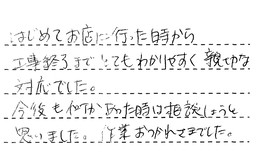 はじめてお店に行った時から
工事終了までとてもわかりやすく親切な
対応でした。
今後も何かあった時は相談しようと
思いました。作業おつかれさまでした。